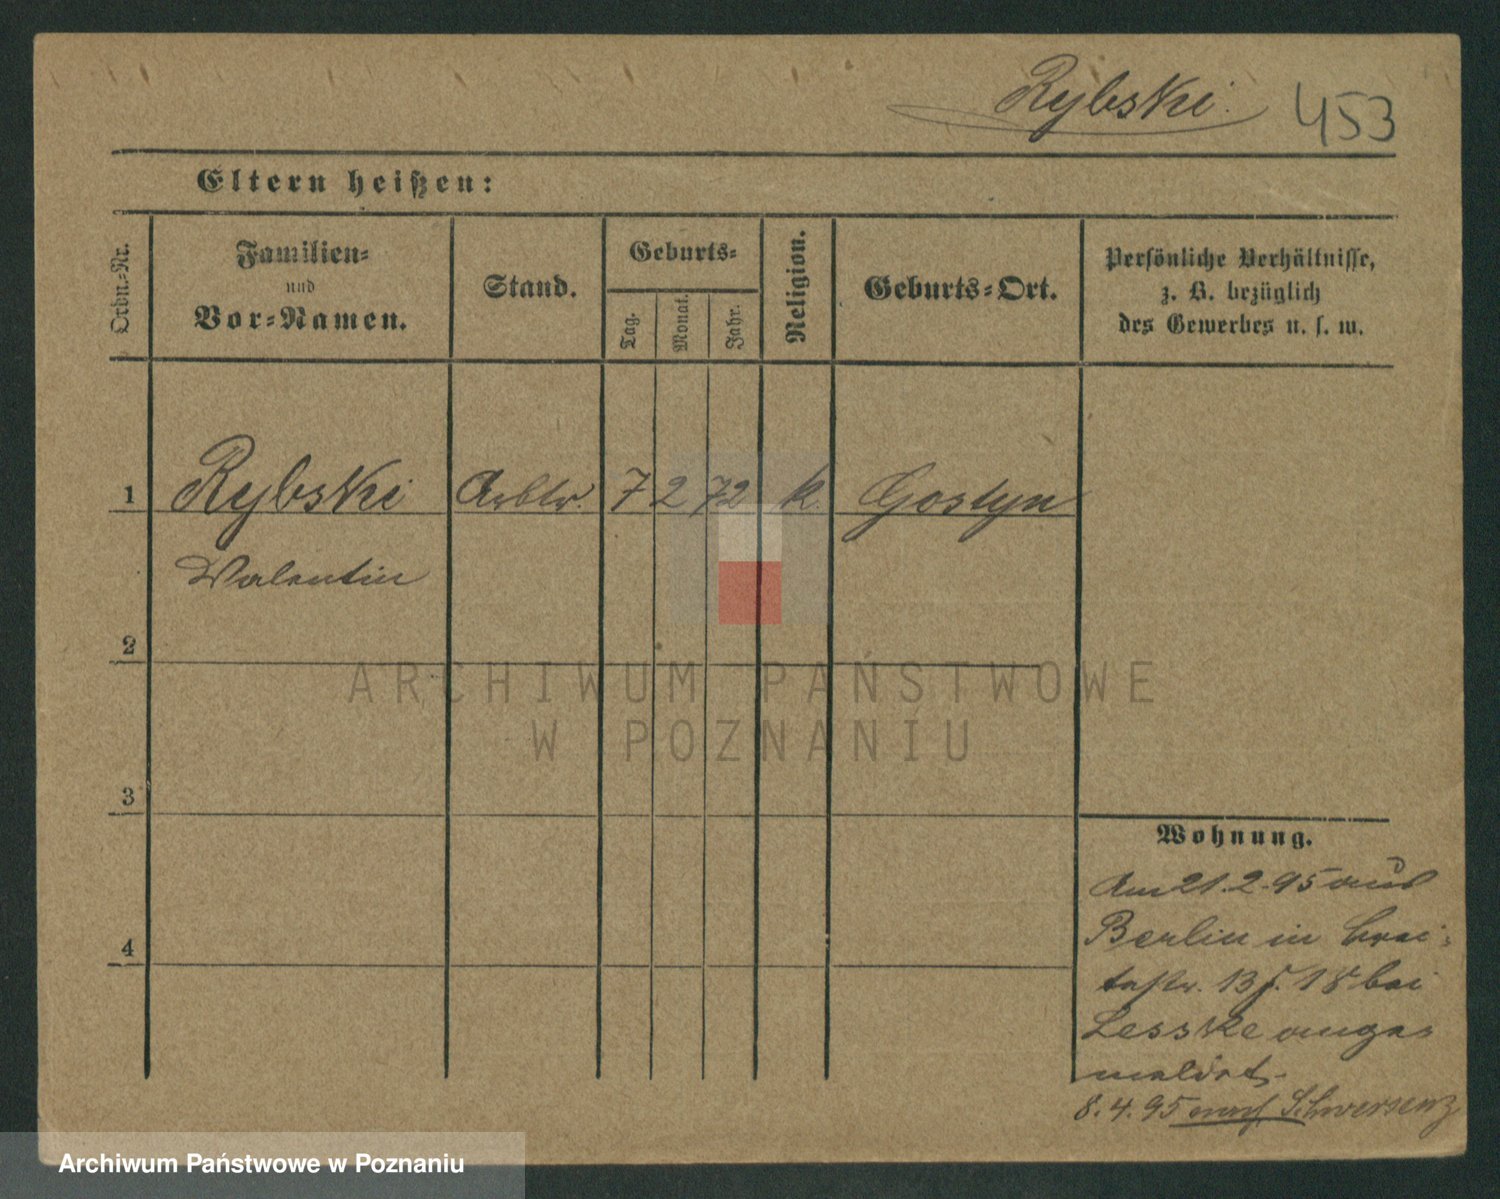 Rybski. 453
Eltern heißen:
Ordn.-Nr.
Familien-
und
Vor-Namen.
Stand.
Geburts-
Tag.
Monat.
Jahr.
Religion.
Geburts-Ort.
Persönliche Verhältnisse,
z. B. bezüglich
des Gewerbes u. s. w.
1 Rybski Arbtr. 7 2 72 k. Gostyn
Valentin
2
3
4
ARCHIWUM PAŃSTWOWE
W POZNANIU
Wohnung.
Am 21.2.95 aus
Berlin in Brei-
testr. 13 18 bei
Lesske ange-
meldet.
8.4.95 nach Schwersenz
Archiwum Państwowe w Poznaniu